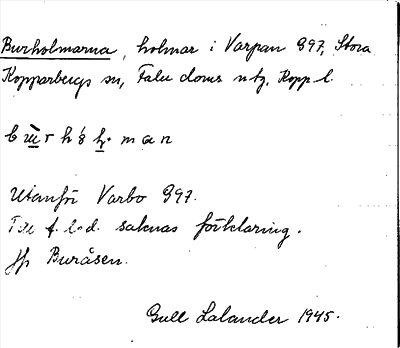 Burholmarna, holmar i Varpan 997, Stora
Kopparbergs sn, Falu doms ntg, Kopp l.
Utanför Varbo 997.
Till f. led. saknas förklaring.
Jfr Buråsen.
Gull Lalander 1945.